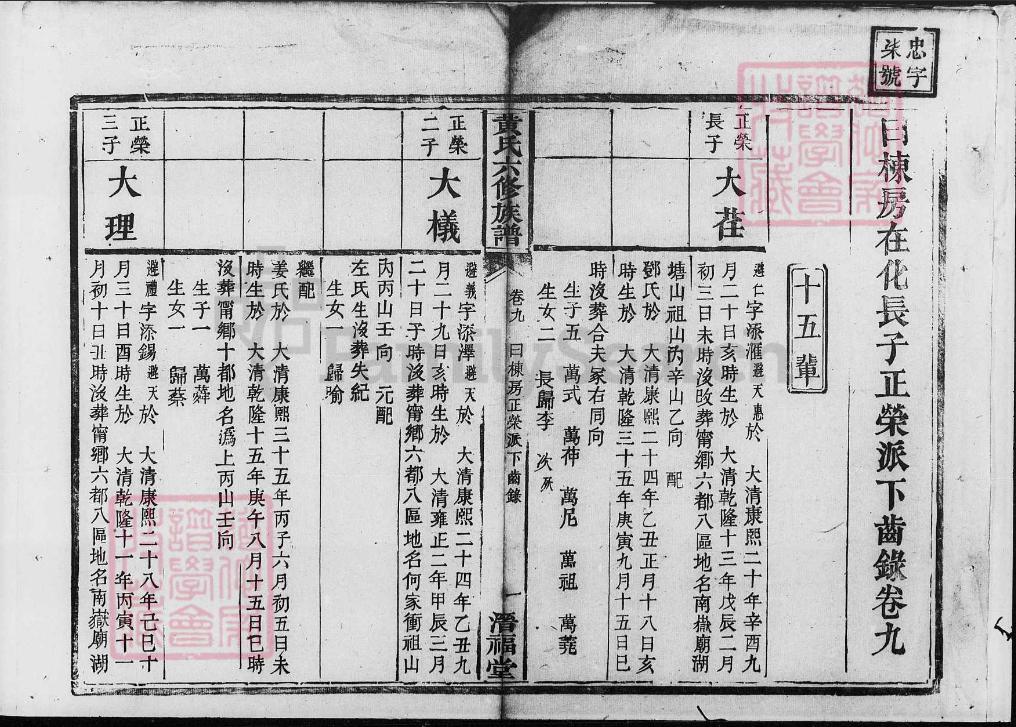 忠字
柒號
曰棟房在化長子正榮派下齒錄卷九
十五輩
正榮
長子
大荏
避仁字添滙避天惠於 大清康熙二十年辛酉九
月二十日亥時生於 大清乾隆十三年戊辰二月
初三日未時沒葬甯鄉六都八區地名南嶽廟湖
塘山祖山丙辛山乙向 配
鄧氏於 大清康熙二十四年乙丑正月十八日亥
時生於 大清乾隆三十五年庚寅九月十五日巳
時沒葬合夫冢右同向
生子五 萬式 萬祌 萬尼 萬祖 萬蕘
生女二 長歸李 次夭
黃氏六修族譜
卷九 曰棟房正榮派下齒錄
一
濳福堂
正榮
二子
大檥
避義字添澤避天於 大清康熙二十四年乙丑九
月二十九日亥時生於 大清雍正二年甲辰三月
二十日子時沒葬甯鄉六都八區地名何家衝祖山
丙丙山壬向 元配
左氏生沒葬失紀
生女一 歸喻
繼配
姜氏於 大清康熙三十五年丙子六月初五日未
時生於 大清乾隆十五年庚午八月十五日巳時
沒葬甯鄉十都地名溈上丙山壬向
生子一 萬蕣
生女一 歸蔡
正榮
三子
大理
避禮字添錫避天於 大清康熙二十八年己巳十
月三十日酉時生於 大清乾隆十一年丙寅十一
月初十日丑時沒葬甯鄉六都八區地名南嶽廟湖
FamilySearch